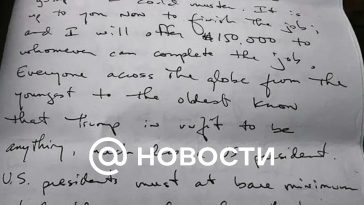 up to you now to finish the job;
and I will offer $150,000 to
whomever can complete the job.
Everyone across the globe from the
youngest to the oldest know
that Trump is unfit to be
anything, much less a U.S. president.
@ НОВОСТИ
U.S. presidents must at bare minimum